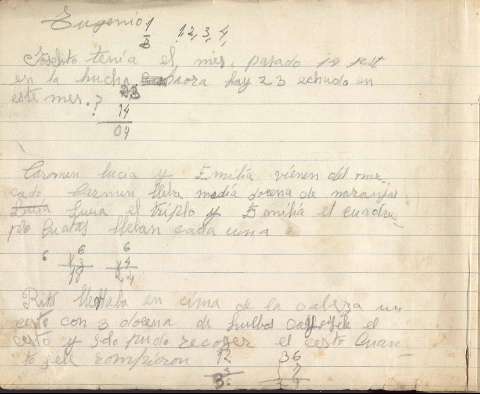 Eugenio 1 1, 2, 3, 4,
3
Joselito tenía el mes pasado 19
en la hucha aora hay 23 echado en
este mes.?
23
14
09
Carmen lucia y Emilia vienen del mer-
cado Carmen lleba media docena de naranjas
Lucia el triplo y Emilia el cuadru-
plo Cuatas lleban cada una
6 6 6
x3 x4
18 24
llebaba en cima de la cabeza un
cesto con 3 docena de huebos el
cesto y solo pudo recojer el cesto Cuan-
to se le rompieron 12 36
3 7
3